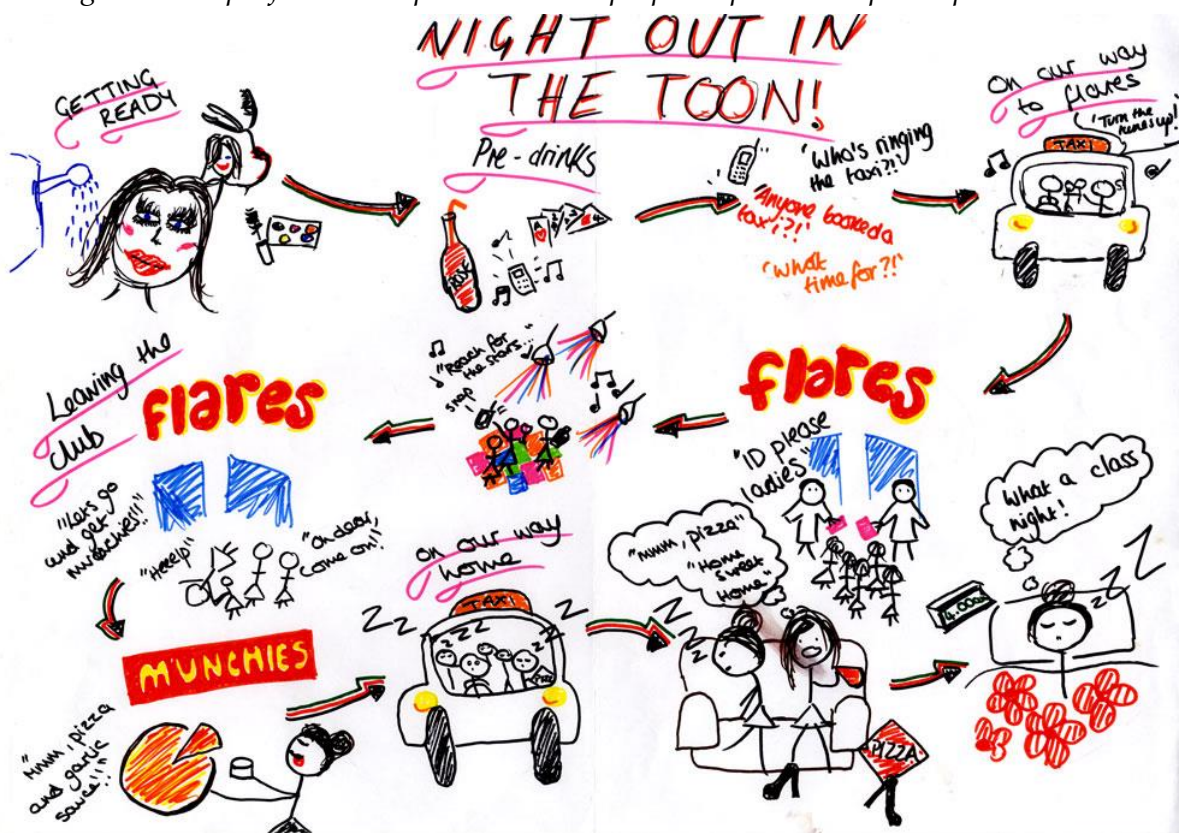 NIGHT OUT IN
THE TOON!
GETTING
READY
Pre-drinks
ROSE
'Who's ringing
the taxi?!'
'Anyone booked a
taxi?!'
'What
time for?!'
on our way
to flares
'Turn the
tunes up!'
TAXI
flares
"ID please
ladies"
"Reach for
the stars..."
snap
Leaving the
club
flares
"Let's go
and get
munchies!!"
"Heeelp"
"oh dear,
come on!!"
MUNCHIES
"Mmm, pizza
and garlic
sauce!!"
on our way
home
TAXI
zzz
"mmm, pizza"
"Home
sweet
Home"
PIZZA
What a class
night!
4.00am
zzz